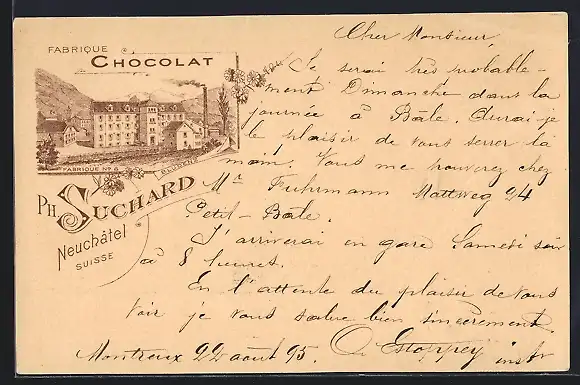 FABRIQUE
CHOCOLAT
FABRIQUE No 6 BLUDENZ
PH. SUCHARD
Neuchâtel
SUISSE
Cher Monsieur,
Je serai très probable-
ment Dimanche dans la
journée à Bâle. Aurai-je
le plaisir de vous serrer la
main. Vous me trouverez chez
Mr Fuhrmann Mattweg 24
Petit-Bâle.
J'arriverai en gare Samedi soir
à 8 heures.
En l'attente du plaisir de vous
voir je vous salue bien sincèrement.
Montreux 22 août 95. O Estoppey instr